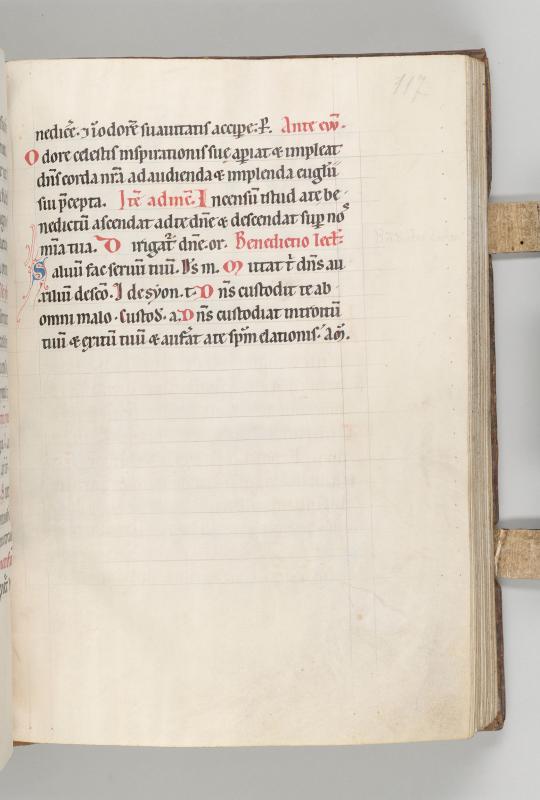 117
nedicẽ. ⁊ ĩ odorẽ suauitatis accipe: P̃. Ante ew̃.
Odore celestis inspirationis suę apiat & impleat
dñs corda nrã ad audienda & implenda eugł̃ii
sui p̃cepta. Itẽ ad incẽ. Incensũ istud a te be
nedictũ ascendat ad te dñe & descendat sup nos
mĩa tua. Dirigat̃ dñe. or. Benedictio lect̃:
Saluũ fac seruũ tuũ. D̃s m. Mittat t̃ dñs au
xiliũ de scõ. I de syon. t. Dñs custodit te ab
omni malo. Custod̃. a. Dñs custodiat introitũ
tuũ & exitũ tuũ & aufãt a te sp̃m elationis. am̃.